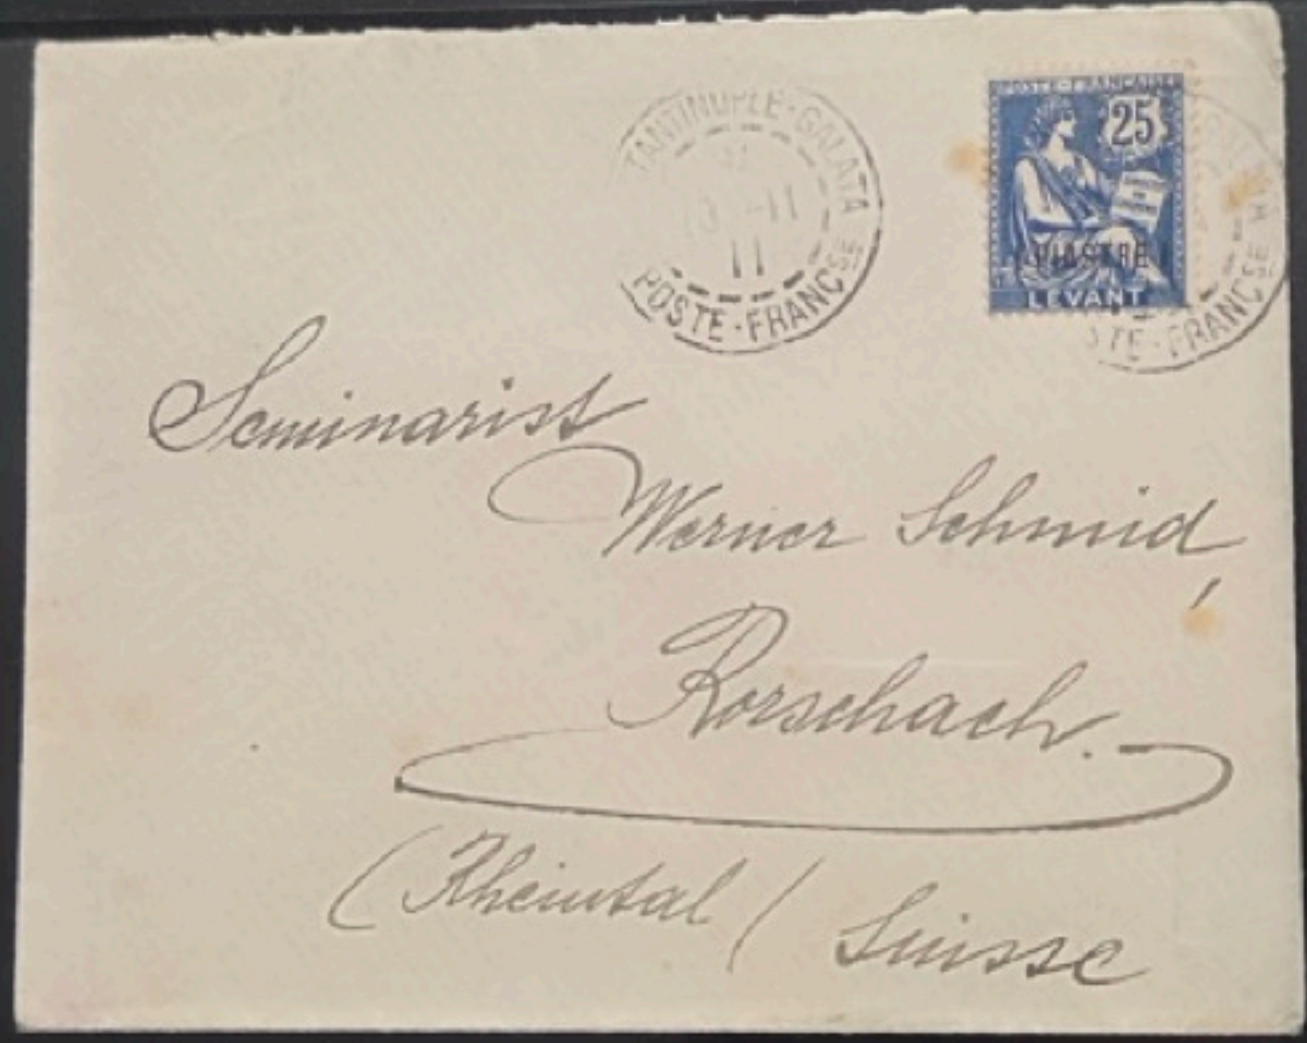 TANTINOPLE-GALATA
-11
11
POSTE-FRANÇSE
POSTE-FRANÇAISE
25
PIASTRE
LEVANT
STE-FRANÇSE
Seminarist
Werner Schmid,
Rorschach.
(Rheintal) Suisse